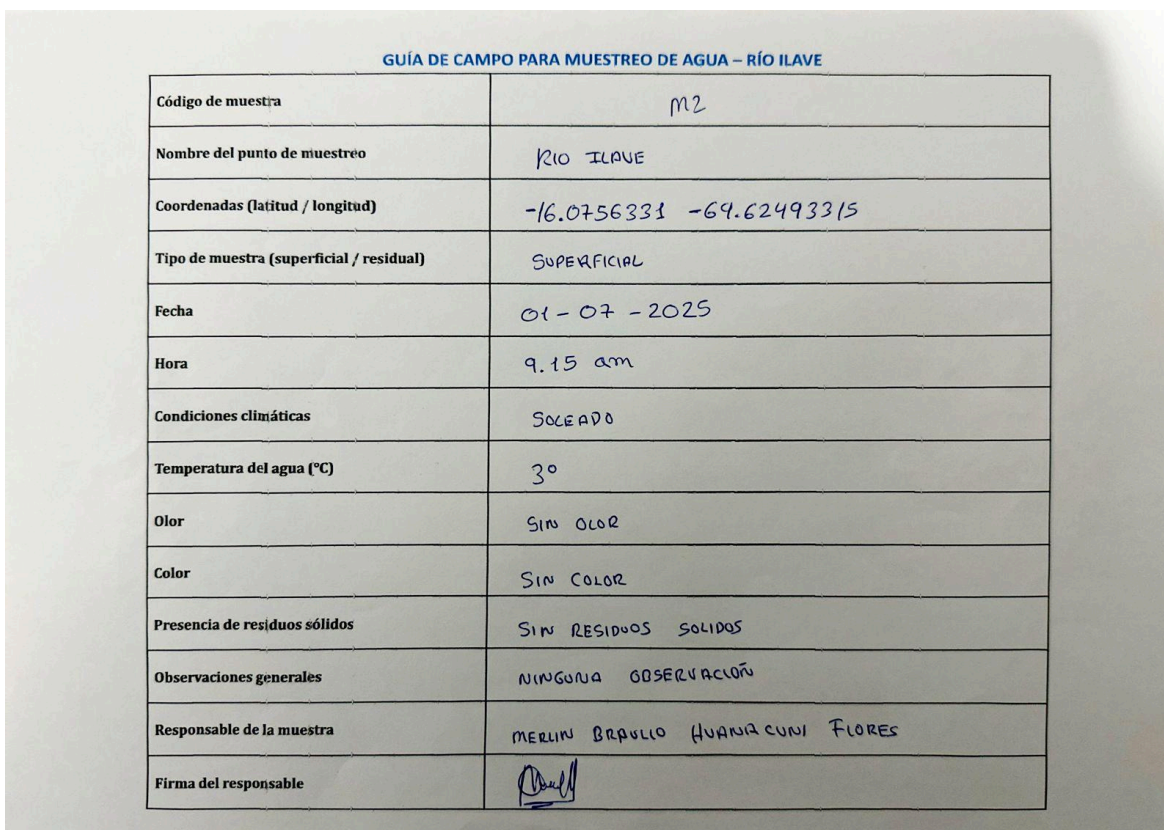 GUÍA DE CAMPO PARA MUESTREO DE AGUA – RÍO ILAVE
Código de muestra M2
Nombre del punto de muestreo RIO ILAVE
Coordenadas (latitud / longitud) -16.0756331 -69.62493315
Tipo de muestra (superficial / residual) SUPERFICIAL
Fecha 01-07-2025
Hora 9.15 am
Condiciones climáticas SOLEADO
Temperatura del agua (°C) 3°
Olor SIN OLOR
Color SIN COLOR
Presencia de residuos sólidos SIN RESIDUOS SOLIDOS
Observaciones generales NINGUNA OBSERVACIOÑ
Responsable de la muestra MERLIN BRAULIO HUANACUNI FLORES
Firma del responsable